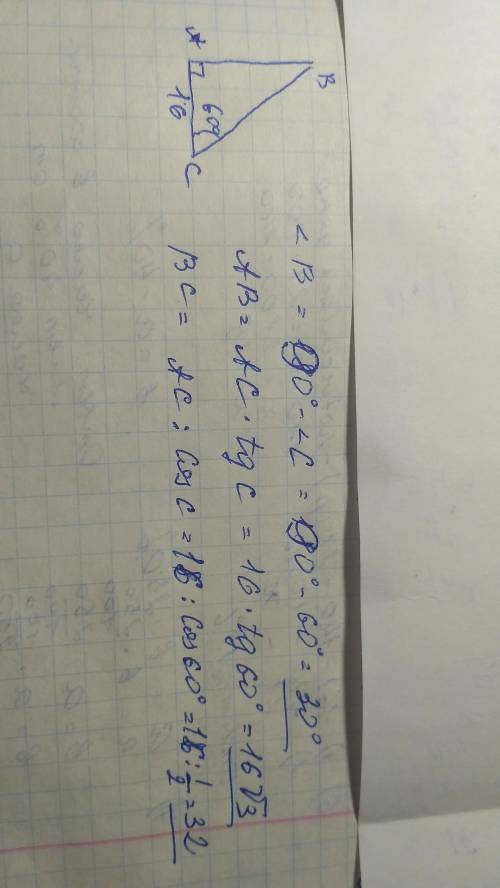 B
A
60°
16
C
∠B = 90° - ∠C = 90° - 60° = 30°
AB = AC · tg C = 16 · tg 60° = 16√3
BC = AC : cos C = 16 : cos 60° = 16 : 1/2 = 32